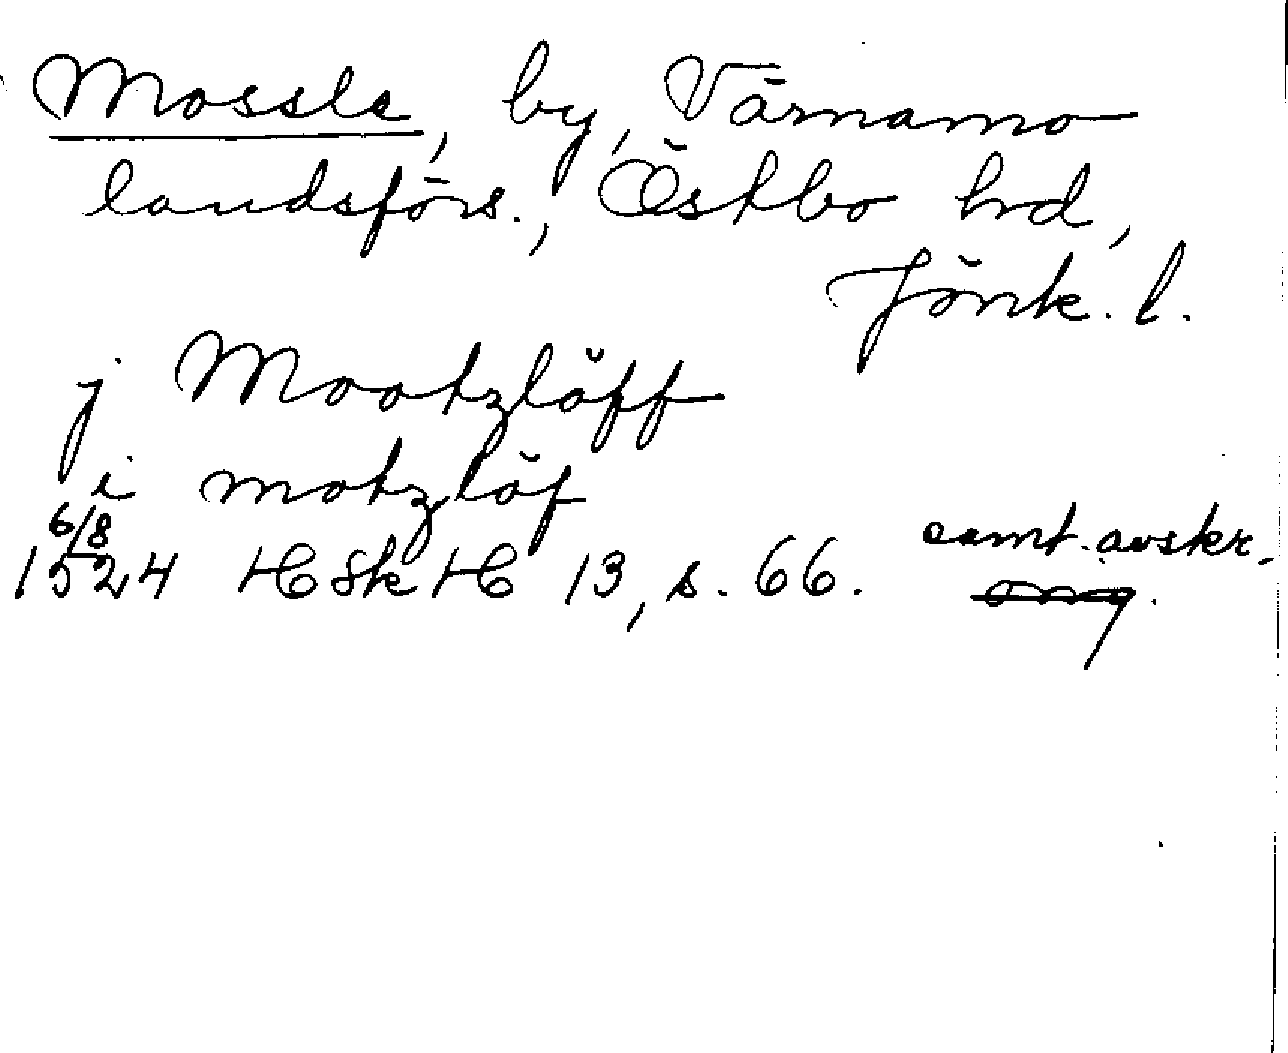 Mossle, by, Värnamo
landsförs., Östbo hd,
Jönk. l.
j Mootzlöff
i motzlöf
6/8
1524 HSkH 13, s. 66. samt. avskr.